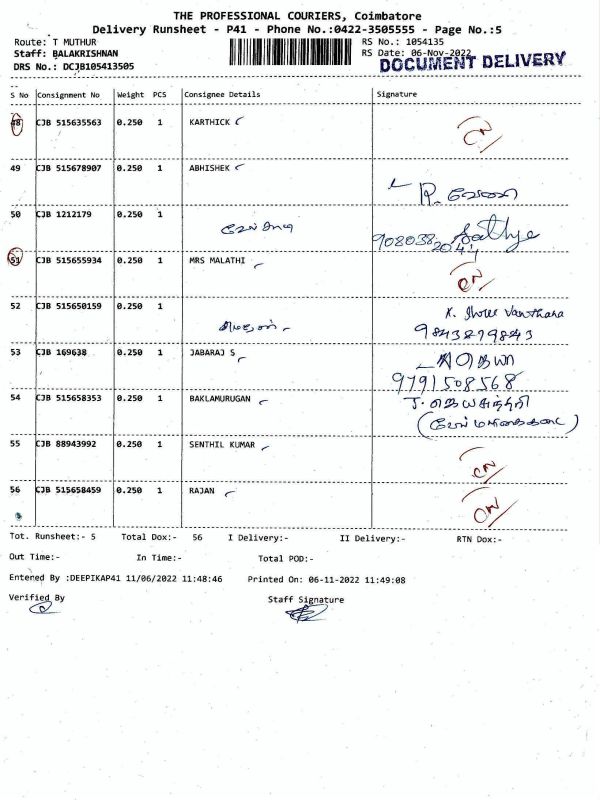 THE PROFESSIONAL COURIERS, Coimbatore
Delivery Runsheet - P41 - Phone No.:0422-3505555 - Page No.:5
Route: T MUTHUR
RS No.: 1054135
Staff: BALAKRISHNAN
RS Date: 06-Nov-2022
DRS No.: DCJB105413505
DOCUMENT DELIVERY
S No Consignment No Weight PCS Consignee Details Signature
48 CJB 515635563 0.250 1 KARTHICK
49 CJB 515678907 0.250 1 ABHISHEK
50 CJB 1212179 0.250 1
908038 2044 Sathya
51 CJB 515655934 0.250 1 MRS MALATHI
52 CJB 515650159 0.250 1
9843279843
53 CJB 169638 0.250 1 JABARAJ S
9791508568
54 CJB 515658353 0.250 1 BAKLAMURUGAN
55 CJB 88943992 0.250 1 SENTHIL KUMAR
56 CJB 515658459 0.250 1 RAJAN
Tot. Runsheet:- 5 Total Dox:- 56 I Delivery:- II Delivery:- RTN Dox:-
Out Time:- In Time:- Total POD:-
Entened By :DEEPIKAP41 11/06/2022 11:48:46 Printed On: 06-11-2022 11:49:08
Verified By Staff Signature